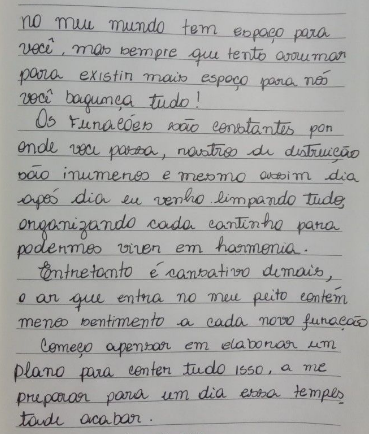 no meu mundo tem espaço para
você, mas sempre que tento arrumar
para existir mais espaço para nós
você bagunça tudo!
Os Furacões são constantes por
onde você passa, rastros de distruição
são inumeros e mesmo assim dia
após dia eu venho limpando tudo,
organizando cada cantinho para
podermos viver em harmonia.
Entretanto é cansativo demais,
o ar que entra no meu peito contém
menos sentimento a cada novo furacão
Começo apensar em elaborar um
plano para conter tudo isso, a me
preparar para um dia essa tempes
tade acabar.